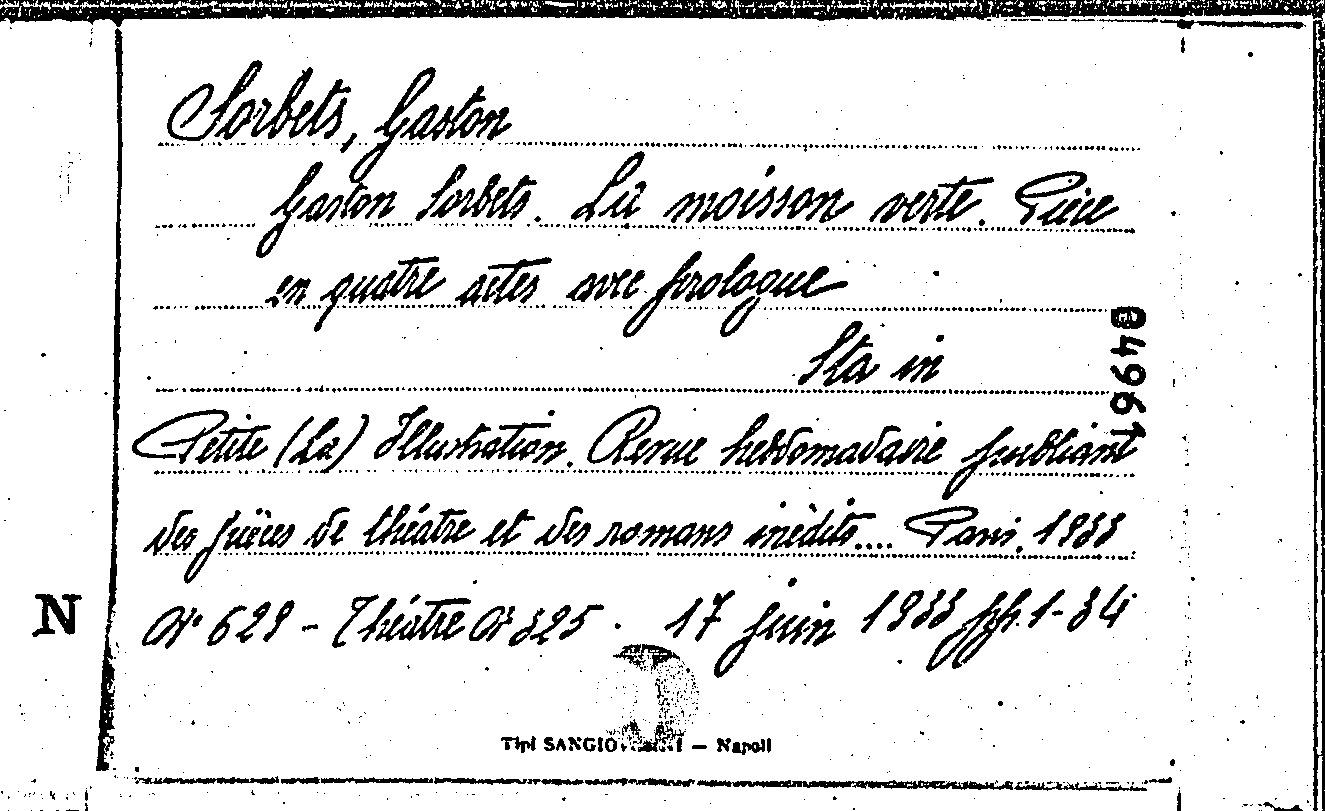 Sorbets, Gaston
Gaston Sorbets. La moisson verte. Pièce
en quatre actes avec prologue
Sta in
Petite (La) Illustration. Revue hebdomadaire publiant
des pièces de théatre et des romans inédits.... Paris, 1933
N° 629 - Théatre N° 325 . 17 juin 1933 pp. 1-34
04961
N
Tipi SANGIOVANNI — Napoli